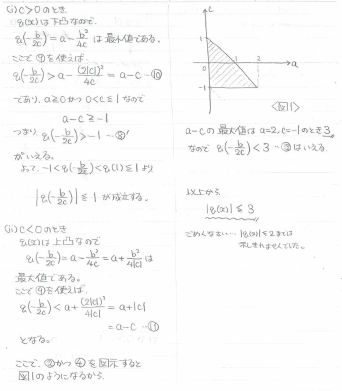 (i) c>0 のとき
g(x) は下凸なので、
g(-b/2c) = a - b²/4c は最小値である。
ここで ⑨ を使えば、
g(-b/2c) > a - (2|c|)²/4c = a-c …⑩
であり、a≧0 かつ 0<c≦1 なので
a-c ≧ -1
つまり g(-b/2c) > -1 …⑧'
がいえる。
よって、-1 < g(-b/2c) < g(1) ≦ 1 より
|g(-b/2c)| ≦ 1 が成立する。
(ii) c<0 のとき
g(x) は上凸なので
g(-b/2c) = a - b²/4c = a + b²/4|c| は
最大値である。
ここで ⑨ を使えば、
g(-b/2c) < a + (2|c|)²/4|c| = a+|c|
= a-c …⑪
となる。
ここで、③かつ④を図示すると
図1のようになるから、
c
1
0
1
2
a
-1
<図1>
a-c の最大値は a=2, c=-1 のとき 3。
なので g(-b/2c) < 3 はいえる。
以上から
|g(x)| ≦ 3
ごめんなさい… |g(x)|≦2 までは
示しきれませんでした。